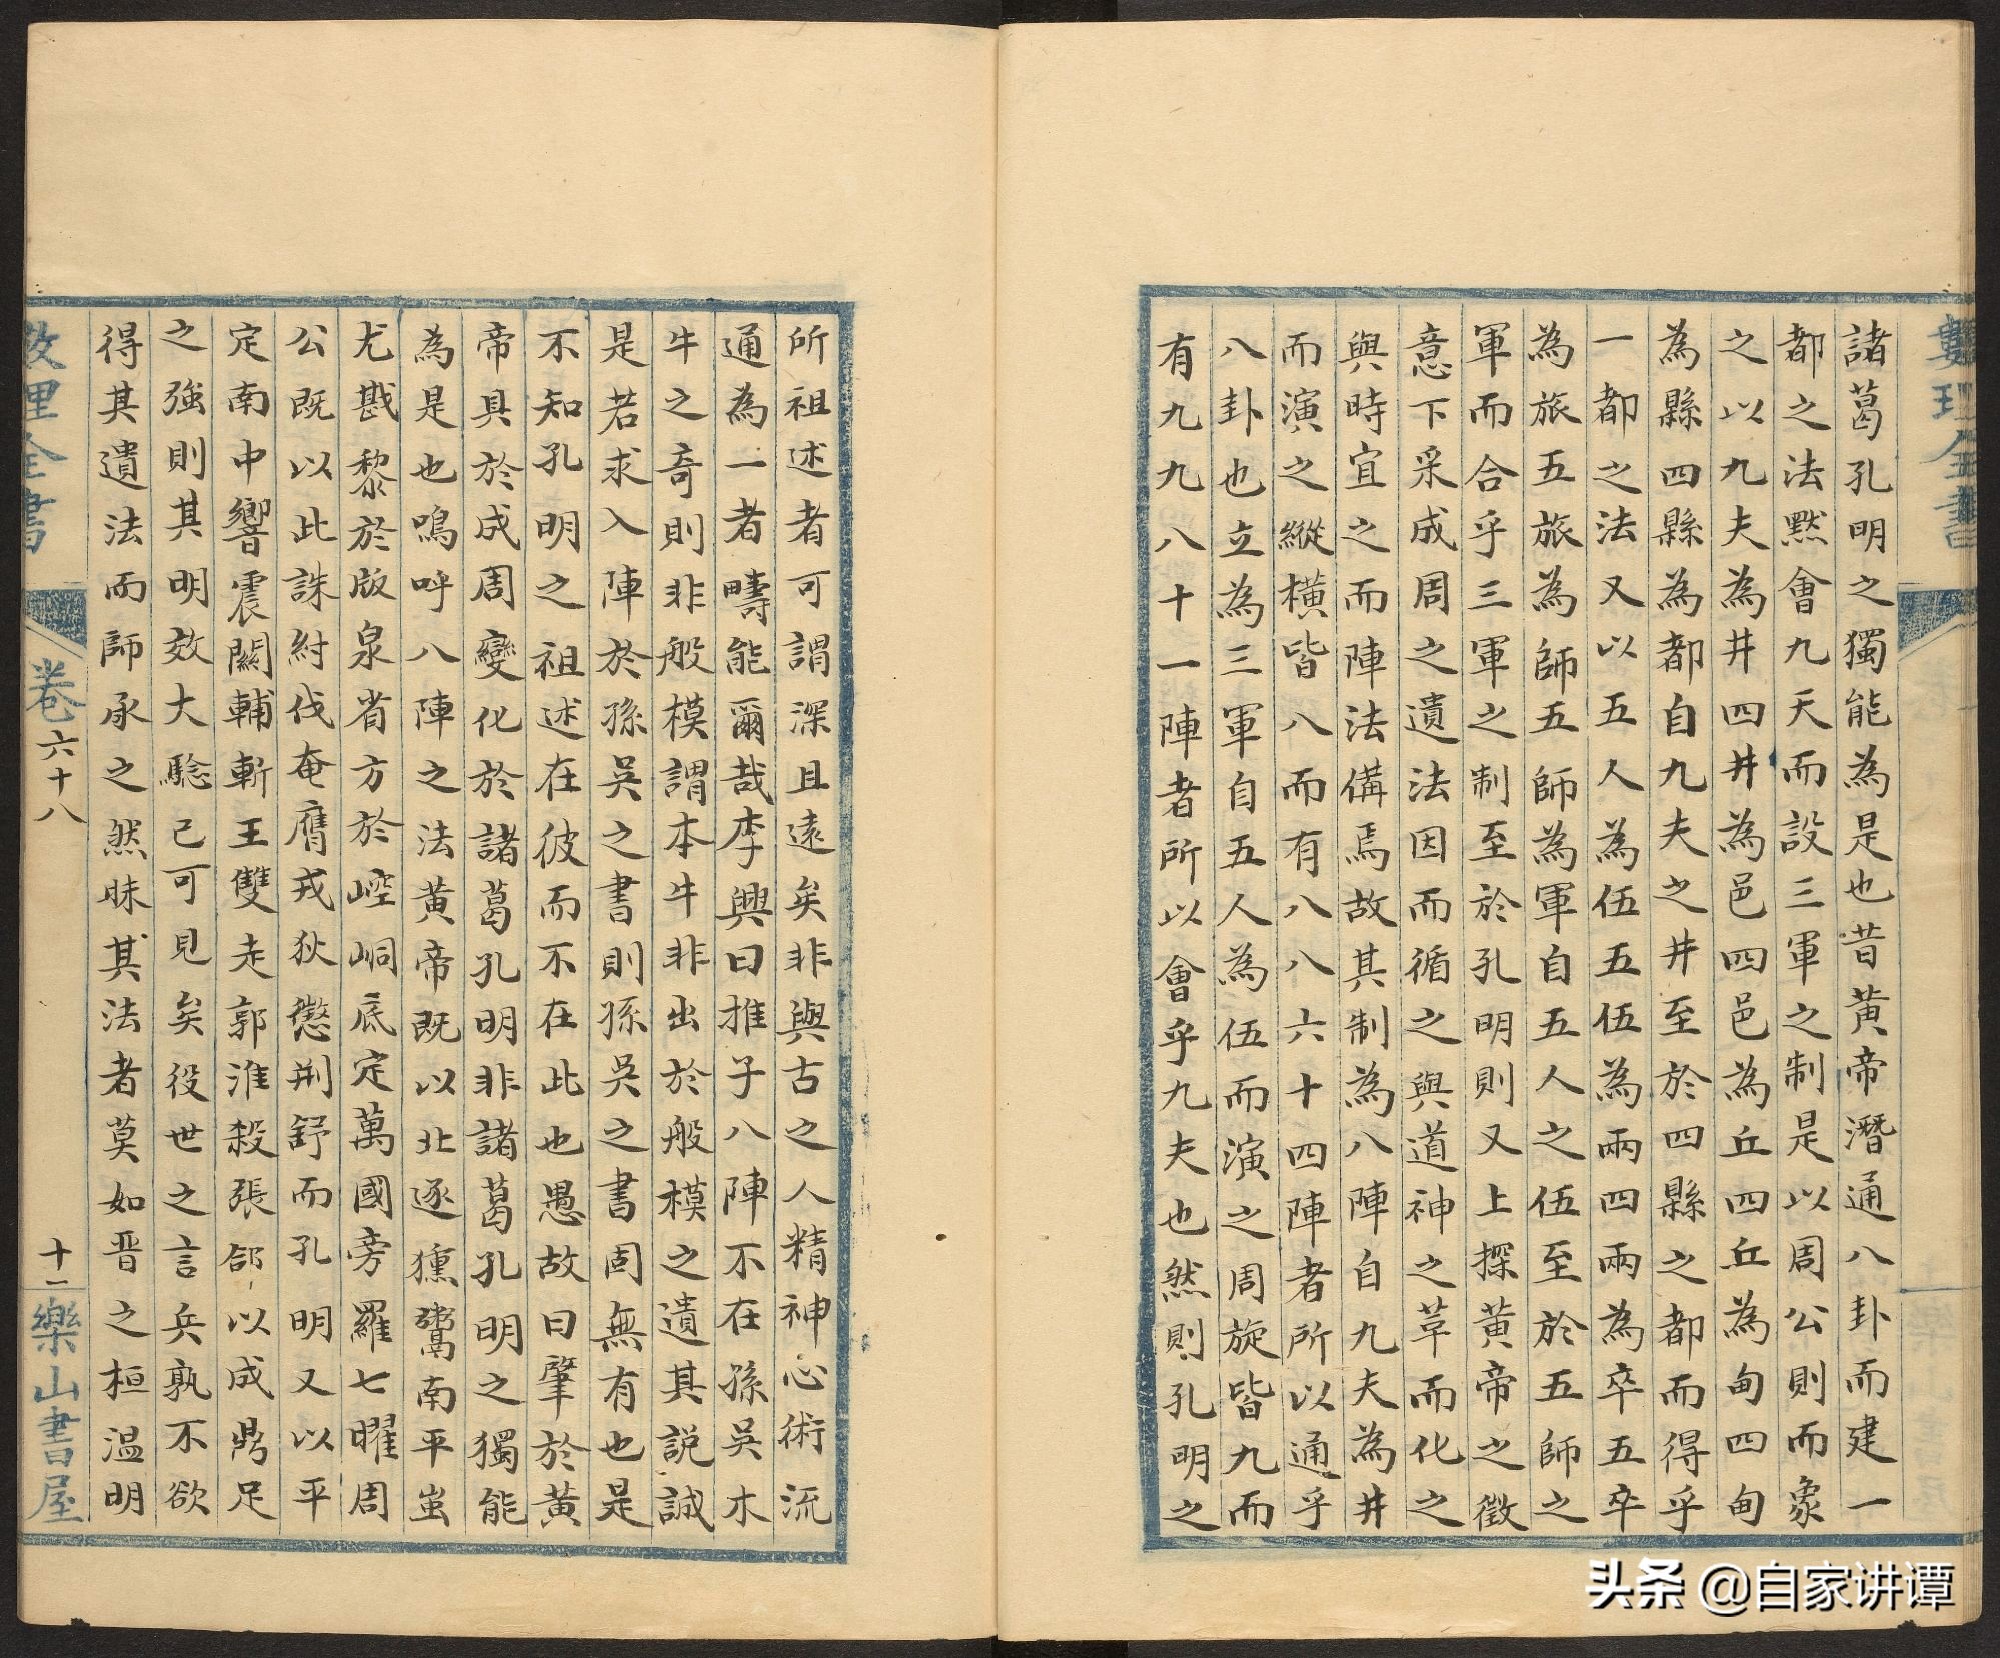 諸葛孔明之獨能為是也昔黃帝潛通八卦而建一
都之法黙會九天而設三軍之制是以周公則而象
之以九夫為井四井為邑四邑為丘四丘為甸四甸
為縣四縣為都自九夫之井至於四縣之都而得乎
一都之法又以五人為伍五伍為兩四兩為卒五卒
為旅五旅為師五師為軍自五人之伍至於五師之
軍而合乎三軍之制至於孔明則又上探黃帝之徵
意下采成周之遺法因而循之與道神之草而化之
與時宜之而陣法備焉故其制為八陣自九夫為井
而演之縱橫皆八而有八八六十四陣者所以通乎
八卦也立為三軍自五人為伍而演之周旋皆九而
有九九八十一陣者所以會乎九夫也然則孔明之
所祖述者可謂深且遠矣非與古之人精神心術流
通為一者疇能爾哉李興曰推子八陣不在孫吳木
牛之奇則非般模謂本牛非出於般模之遺其說誠
是若求入陣於孫吳之書則孫吳之書固無有也是
不知孔明之祖述在彼而不在此也愚故曰肇於黃
帝具於成周變化於諸葛孔明非諸葛孔明之獨能
為是也嗚呼八陣之法黃帝既以北逐獯鬻南平蚩
尤戡黎於版泉省方於崆峒底定萬國旁羅七曜周
公既以此誅紂伐奄膺戎狄懲荆舒而孔明又以平
定南中響震關輔斬王雙走郭淮殺張郃以成鼎足
之強則其明效大騐己可見矣役世之言兵孰不欲
得其遺法而師承之然昧其法者莫如晋之桓溫明
數理全書
卷六十八
十一
樂山書屋
头条 @自家讲谭